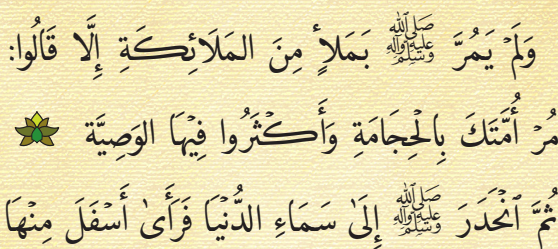 وَلَمْ يَمُرَّ ﷺ بَمَلأٍ مِنَ المَلَائِكَةِ إِلَّا قَالُوا:
مُرْ أُمَّتَكَ بِالْحِجَامَةِ وَأَكْثَرُوا فِيْهَا الوَصِيَّة
ثُمَّ ٱنْحَدَرَ ﷺ إِلَىٰ سَمَاءِ الدُّنْيَا فَرَأَىٰ أَسْفَلَ مِنْهَا